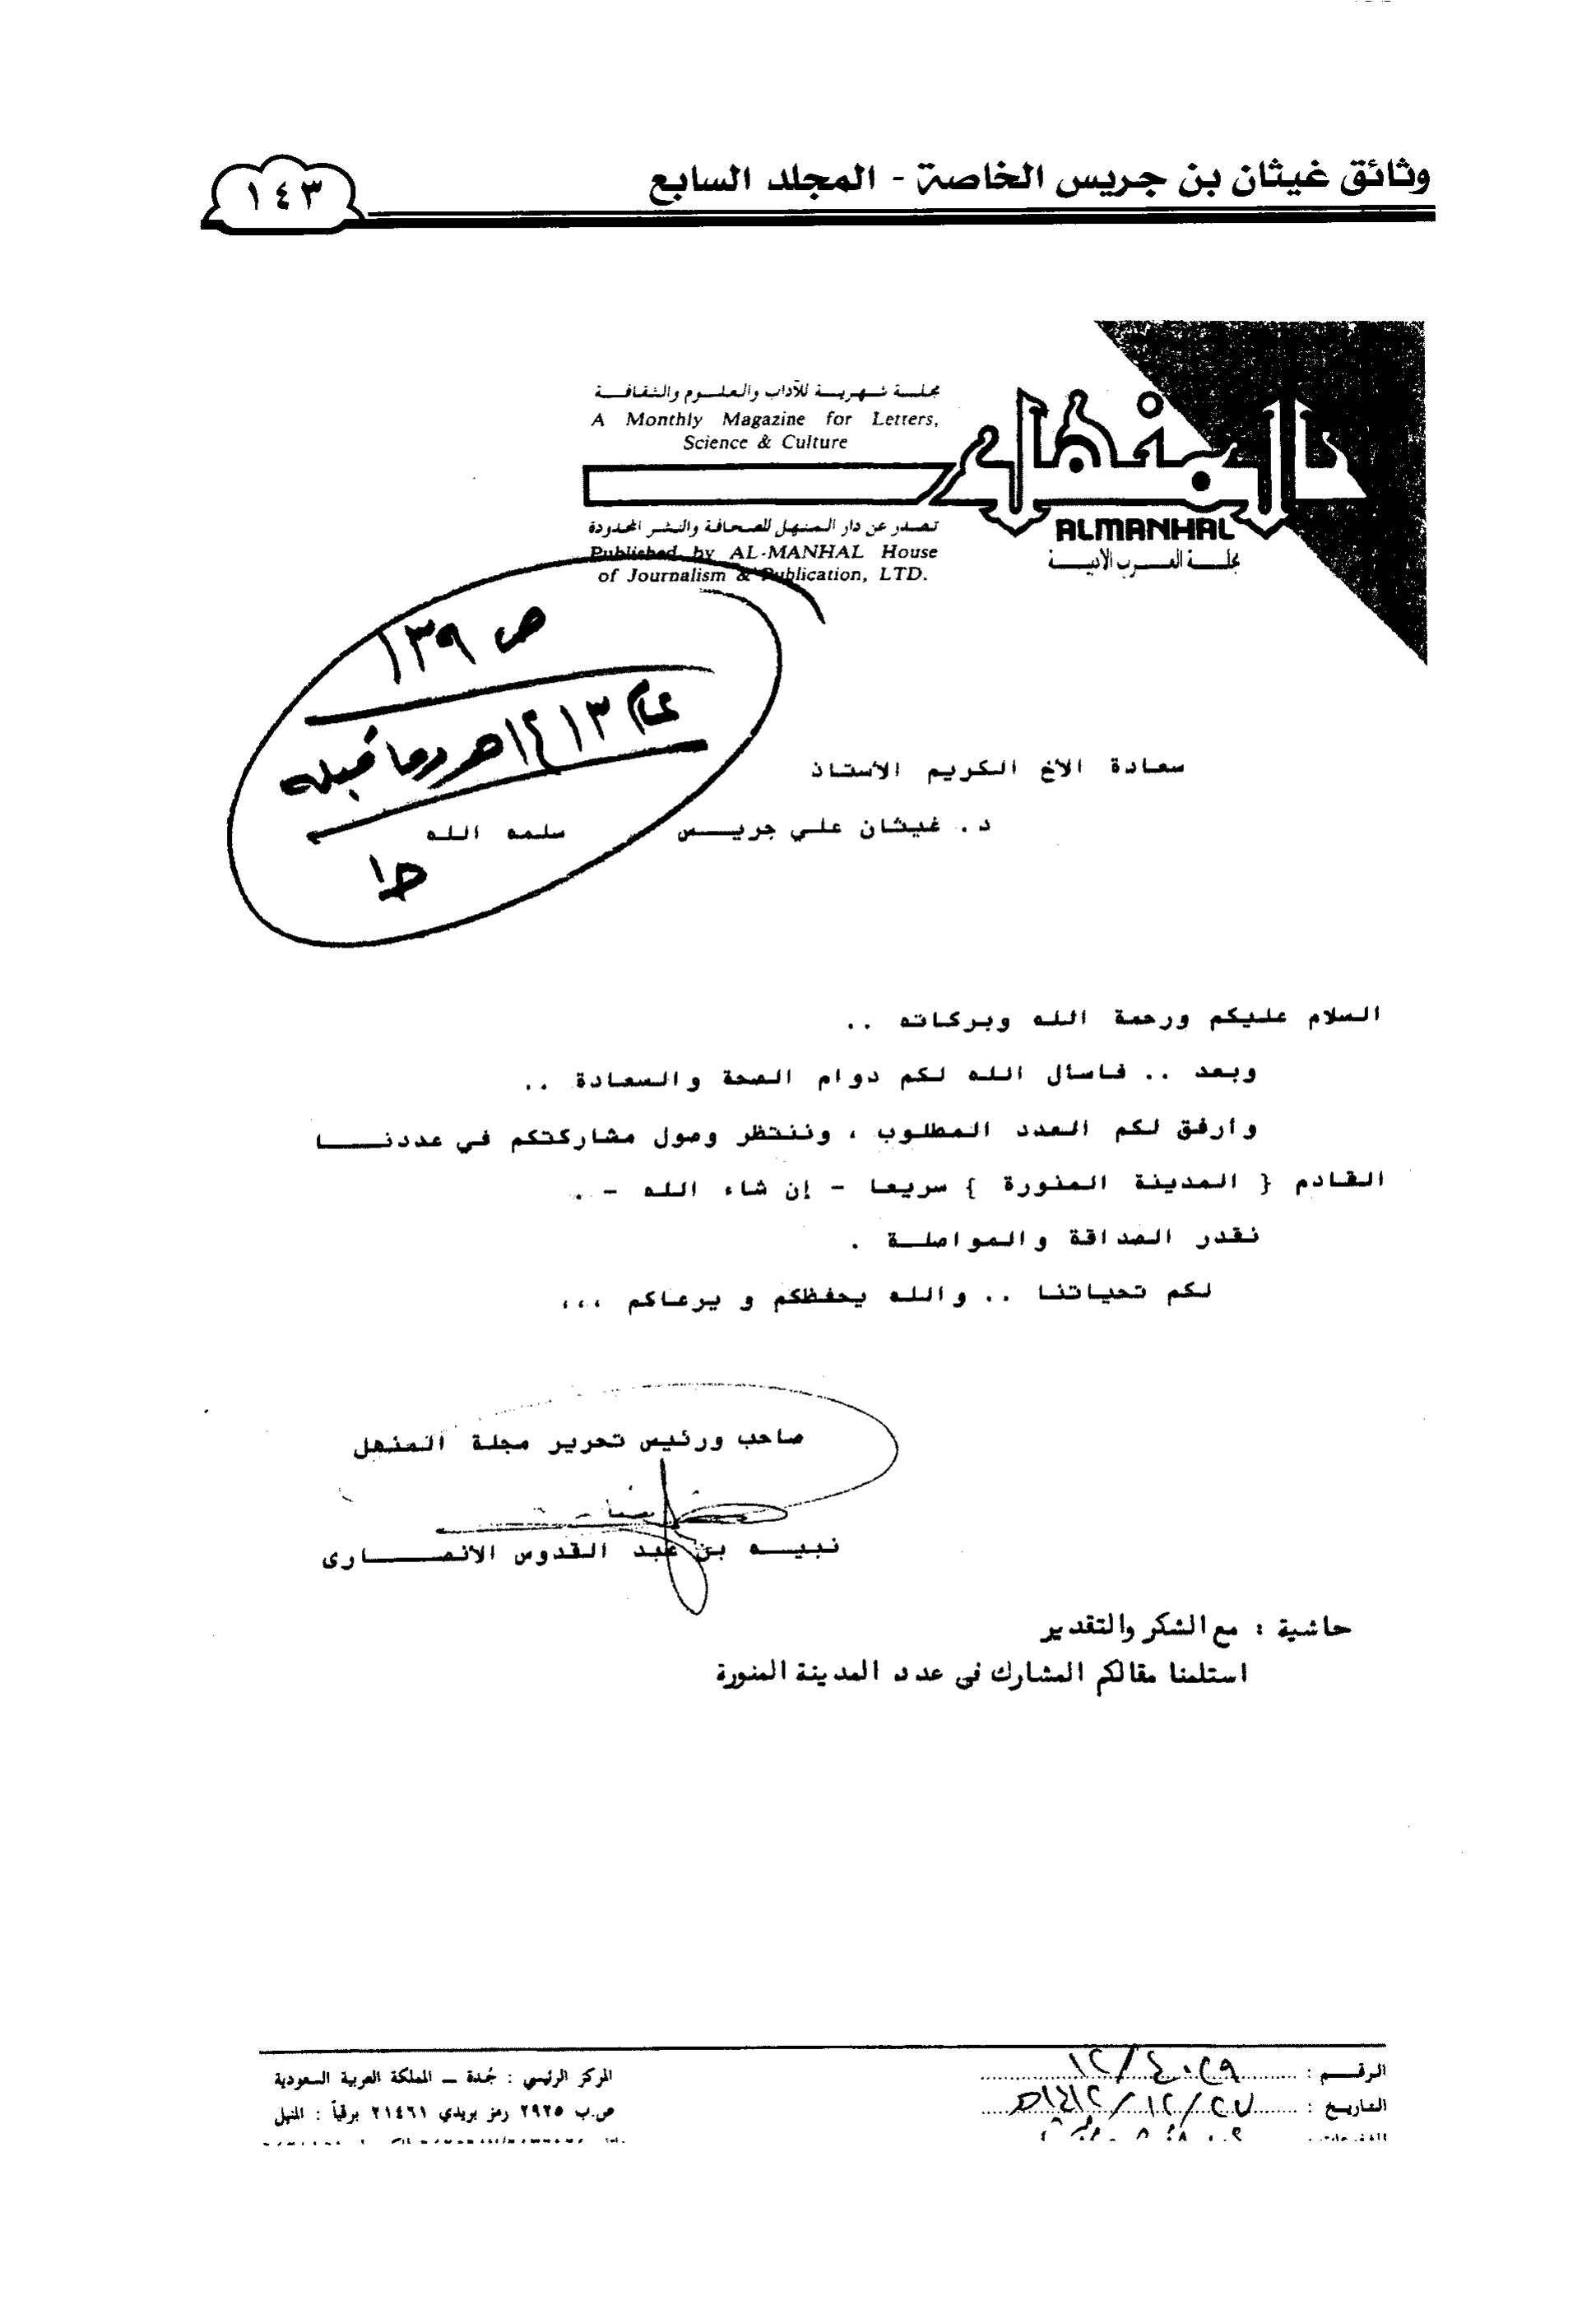 وثائق غيثان بن جريس الخاصة - المجلد السابع
١٤٣
مجلـة شـهريـة للآداب والعلـوم والثقافـة
A Monthly Magazine for Letters,
Science & Culture
المنهل
تصدر عن دار المنهل للصحافة والنشر المحدودة
ALMANHAL
Published by AL-MANHAL House
of Journalism & Publication, LTD.
مجلـة العـرب الأدبيـة
ص ١٣٩
عام ١٤١٣هـ وما قبله
سعادة الاخ الكريم الأستاذ
د . غيثان علي جريـــس سلمه الله
السلام عليكم ورحمة الله وبركاته ..
وبعد .. فاسأل الله لكم دوام الصحة والسعادة ..
وأرفق لكم العدد المطلوب ، وننتظر وصول مشاركتكم في عددنـــا
القادم { المدينة المنورة } سريعا - إن شاء الله - .
نقدر الصداقة والمواصلـة .
لكم تحياتنا .. والله يحفظكم و يرعاكم ،،،
صاحب ورئيس تحرير مجلة المنهل
نبيـــه بن عبد القدوس الأنصـــارى
حاشية : مع الشكر والتقدير
استلمنا مقالكم المشارك فى عدد المدينة المنورة
الرقـــم : ١٢/٤٠٢٩
التاريخ : ٢٧/١٢/١٤١٢هـ
المركز الرئيسي : جُدة – المملكة العربية السعودية
ص.ب ٢٩٢٥ رمز بريدي ٢١٤٦١ برقياً : المنهل